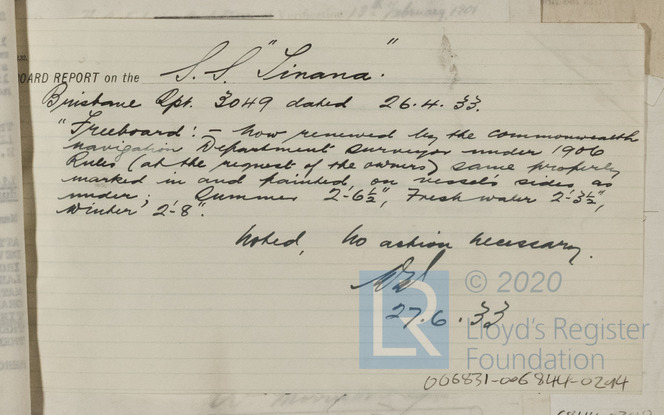 13th February, 1901
OARD REPORT on the S.S. "Tinana".
Brisbane Rpt. 3049 dated 26.4.33.
"Freeboard: - Now renewed by the Commonwealth
navigation Department surveyor under 1906
Rules (at the request of the owners) same properly
marked in and painted on vessel's sides as
under; Summer 2'-6½", Fresh water 2'-3½",
Winter 2'-8".
Noted, No action necessary.
27.6.33
LR
© 2020
Lloyd's Register
Foundation
006831-006844-0294